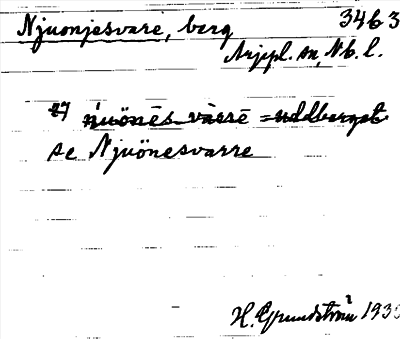 Njuonjesvare, berg 3463
Arjepl. sn, Nb. l.
27 ńuönēs-vàrrē = uddberget
se Njuönesvarre
H. Grundström